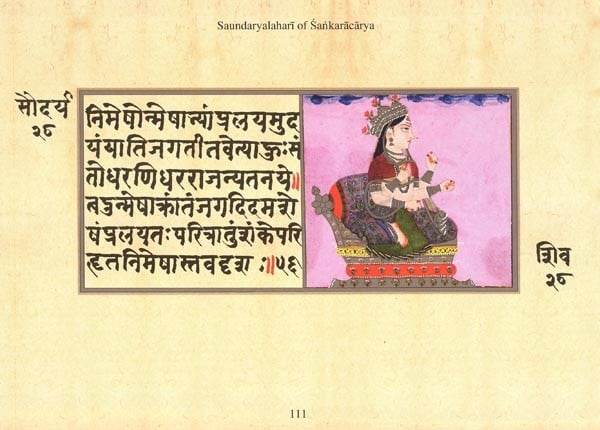 Saundaryalaharī of Śaṅkarācārya
सौदर्य
२८
निमेषोन्मेषाभ्यांप्रलयमुद
यंयातिजगतीतवेत्याहुःसं
तोधरणिधरराजन्यतनये॥
त्वदुन्मेषाज्जातंजगदिदमशे
षंप्रलयतःपरित्रातुंशंकेपरि
हृतनिमेषास्तवदृशः॥५६
शिव
२८
111